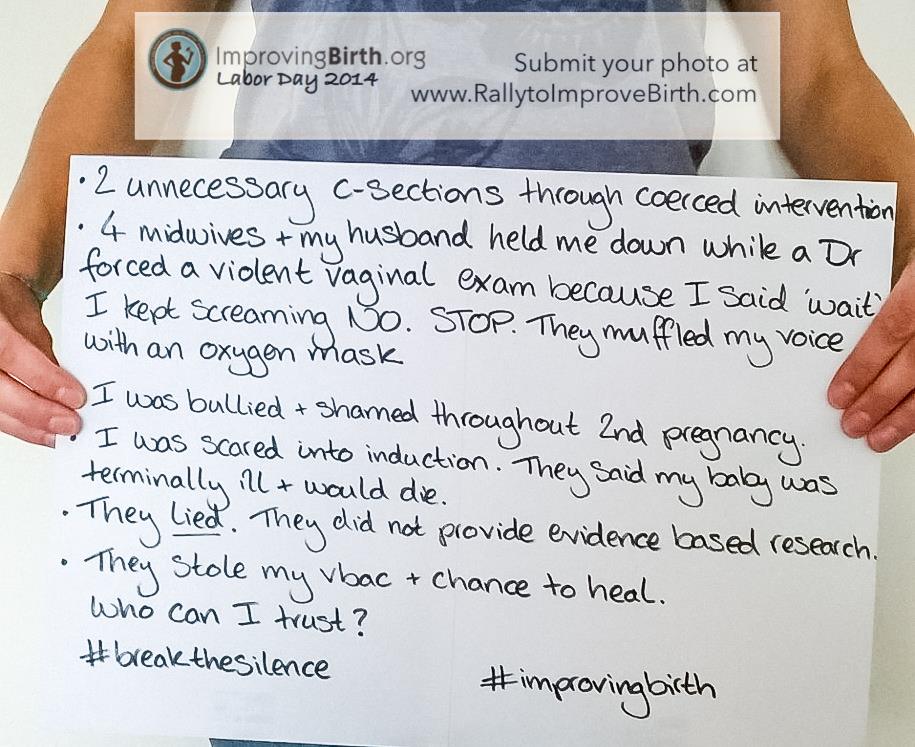 ImprovingBirth.org
Labor Day 2014
Submit your photo at
www.RallytoImproveBirth.com
• 2 unnecessary c-sections through coerced intervention
• 4 midwives + my husband held me down while a Dr
forced a violent vaginal exam because I said 'wait'
I kept screaming NO. STOP. They muffled my voice
with an oxygen mask
I was bullied + shamed throughout 2nd pregnancy.
• I was scared into induction. They said my baby was
terminally ill + would die.
• They lied. They did not provide evidence based research.
• They stole my vbac + chance to heal.
Who can I trust?
#breakthesilence
#improvingbirth